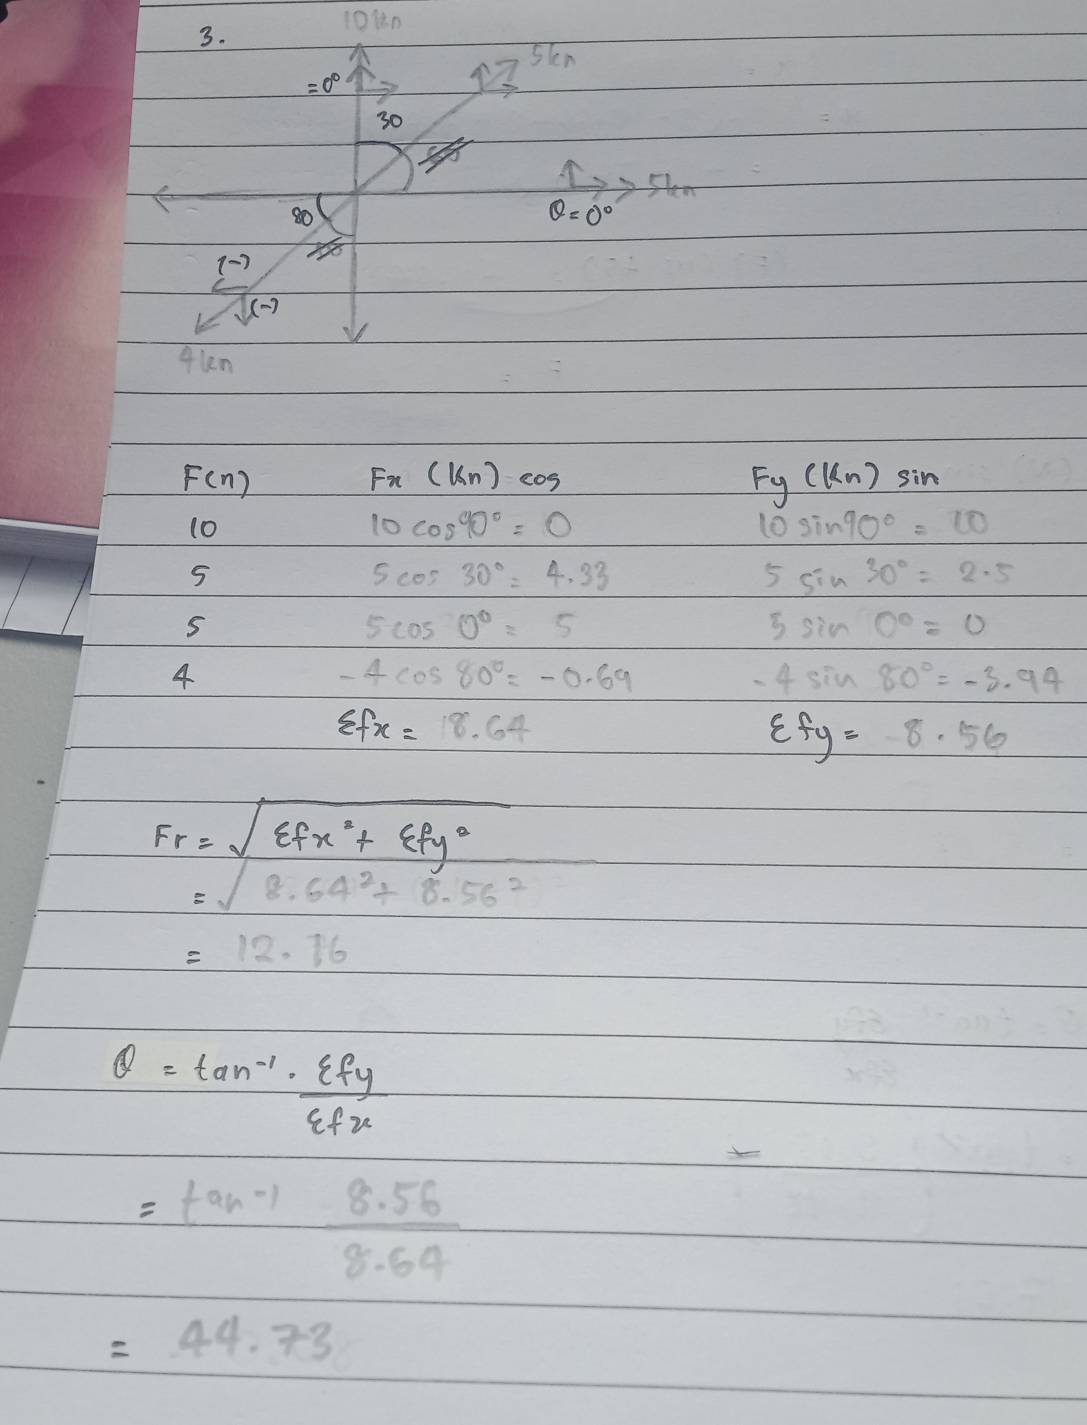 3.
10kn
5kn
=0°
30
5kn
θ=0°
80
(-)
(-)
4kn
F(n) Fx (kn) cos Fy (kn) sin
10 10 cos90° = 0 10 sin90° = 10
5 5 cos 30° = 4.33 5 sin 30° = 2.5
5 5 cos 0° = 5 5 sin 0° = 0
4 -4 cos 80° = -0.69 -4 sin 80° = -3.94
Σfx = 8.64 Σfy = 8.56
Fr = √Σfx² + Σfy²
= √8.64² + 8.56²
= 12.16
θ = tan⁻¹ . Σfy
Σfx
= tan⁻¹ 8.56
8.64
= 44.73